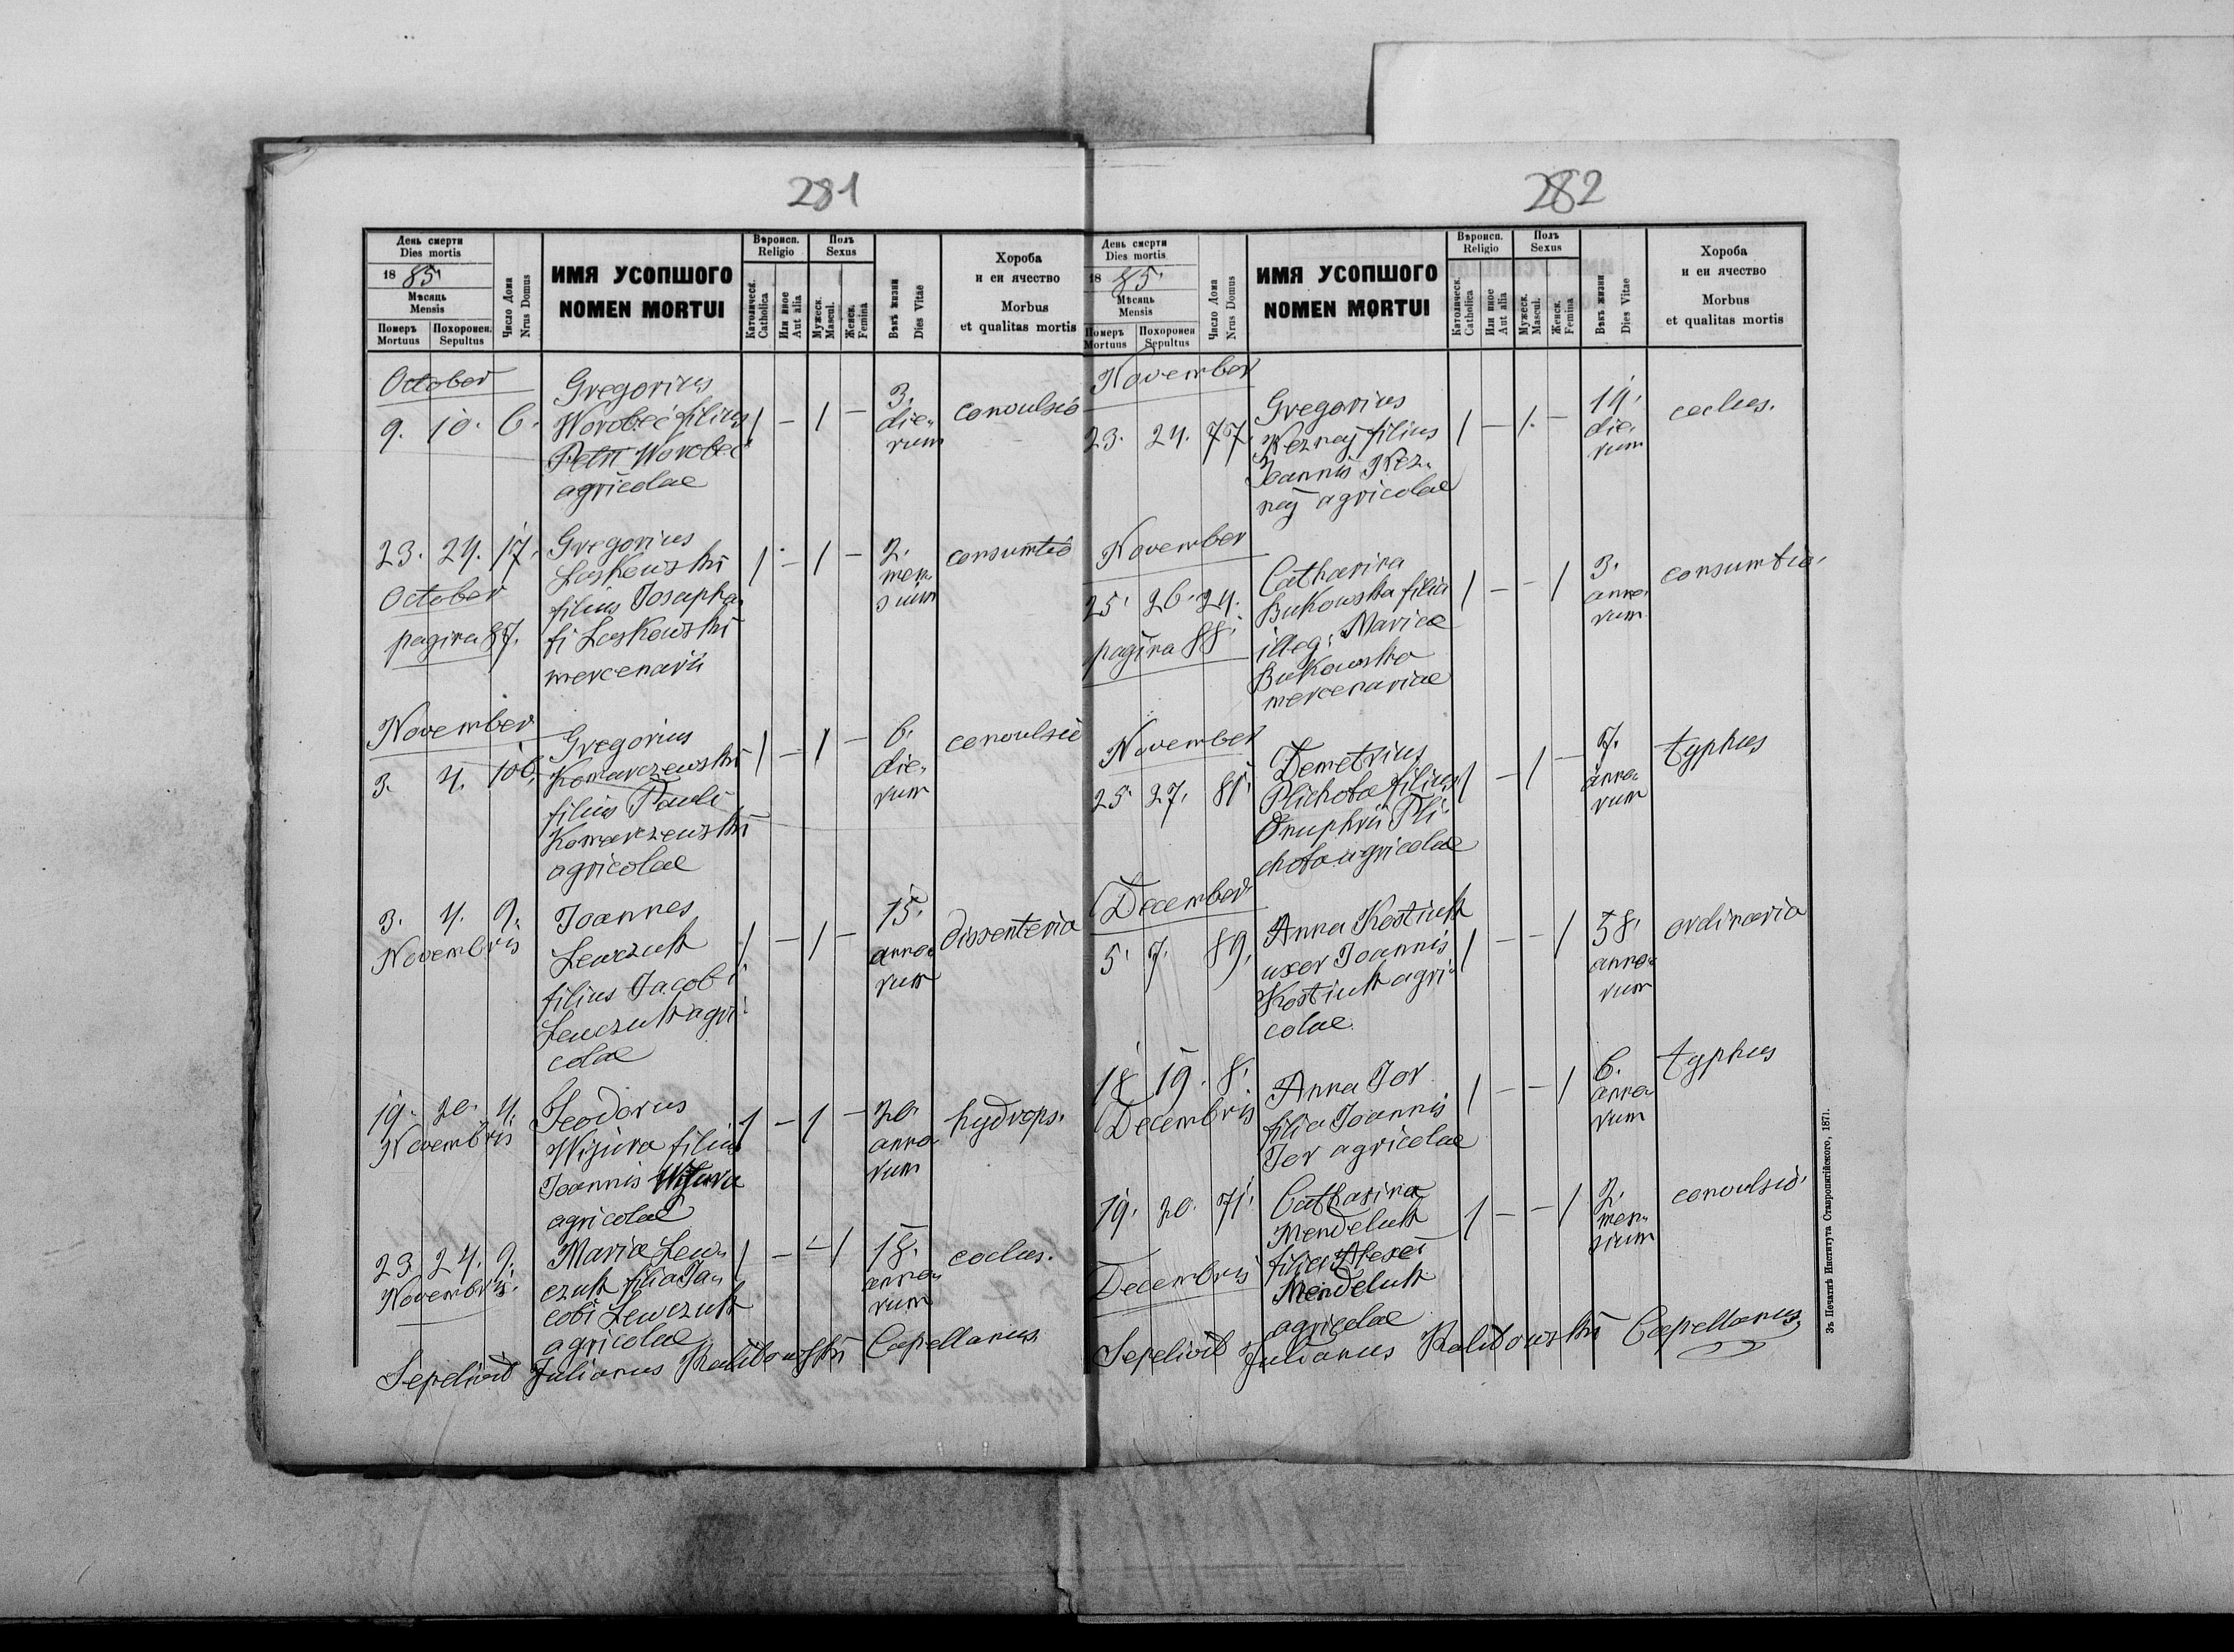 281
День смерти
Dies mortis
1885.
Мѣсяць
Mensis
Померъ
Mortuus
Похоронен.
Sepultus
Число Дома
Nrus Domus
ИМЯ УСОПШОГО
NOMEN MORTUI
Вѣроисп.
Religio
Католическ.
Catholica
Или иное
Aut alia
Полъ
Sexus
Мужеск.
Mascul.
Женск.
Femina
Вѣкъ жизни
Dies Vitae
Хороба
и еи ячество
Morbus
et qualitas mortis
October
9. 10. 6. Gregorius 1 — 1 — 3. convulsio
Worobeć filius die-
Petri Worobeć rum
agricolae
23. 24. 17. Gregorius 1 — 1 — 2. consumtio
October Laskowski men-
filius Josapha- sium
pagina 87. ti Laskowski
mercenarii
November
3. 4. 106. Gregorius 1 — 1 — 6. convulsio
Komarczewski die-
filius Pauli rum
Komarczewski
agricolae
3. 4. 9. Joannes 1 — 1 — 15. dissenteria
Novembris Lewczuk anno-
filius Jacobi rum
Lewczuk agri-
colae
19. 20. 4. Teodorus 1 — 1 — 20. hydrops.
Novembris Wijura filius anno-
Joannis Wijura rum
agricolae
23. 24. 9. Maria Lew- 1 — — 1 18. coclus.
Novembris. czuk filia Ja- anno-
cobi Lewczuk rum
agricolae
Sepelivit Julianus Kalitowski Capellanus.
282
День смерти
Dies mortis
1885.
Мѣсяць
Mensis
Померъ
Mortuus
Похоронен
Sepultus
Число Дома
Nrus Domus
ИМЯ УСОПШОГО
NOMEN MORTUI
Вѣроисп.
Religio
Католическ.
Catholica
Или иное
Aut alia
Полъ
Sexus
Мужеск.
Mascul.
Женск.
Femina
Вѣкъ жизни
Dies Vitae
Хороба
и еи ячество
Morbus
et qualitas mortis
November
23. 24. 77. Gregorius 1 — 1. — 14. coclus.
filius die-
Joannis rum
agricolae
November
25. 26. 24. Catharina 1 — — 1 3. consumtio.
Bukowska filia anno-
pagina 88. illeg: Mariae rum
Bukowska
mercenariae
November
25. 27. 81. Demetrius 1 — 1 — 7. typhus
Plichota filius anno-
Onuphrii Pli- rum
chota agricolae
December
5. 7. 89. Anna Kostiuk 1 — — 1 58. ordinaria
uxor Joannis anno-
Kostiuk agri- rum
colae.
18 19. 8. Anna Jor 1 — — 1 6. typhus
Decembris filia Joannis anno-
Jor agricolae rum
19. 20. 71. Catharina 1 — — 1 2. convulsio.
Mendeluk men-
Decembris filia Alexei sium
Mendeluk
agricolae
Sepelivit Julianus Kalitowski Capellanus
Зъ Печатнѣ Института Ставропигійского, 1871.